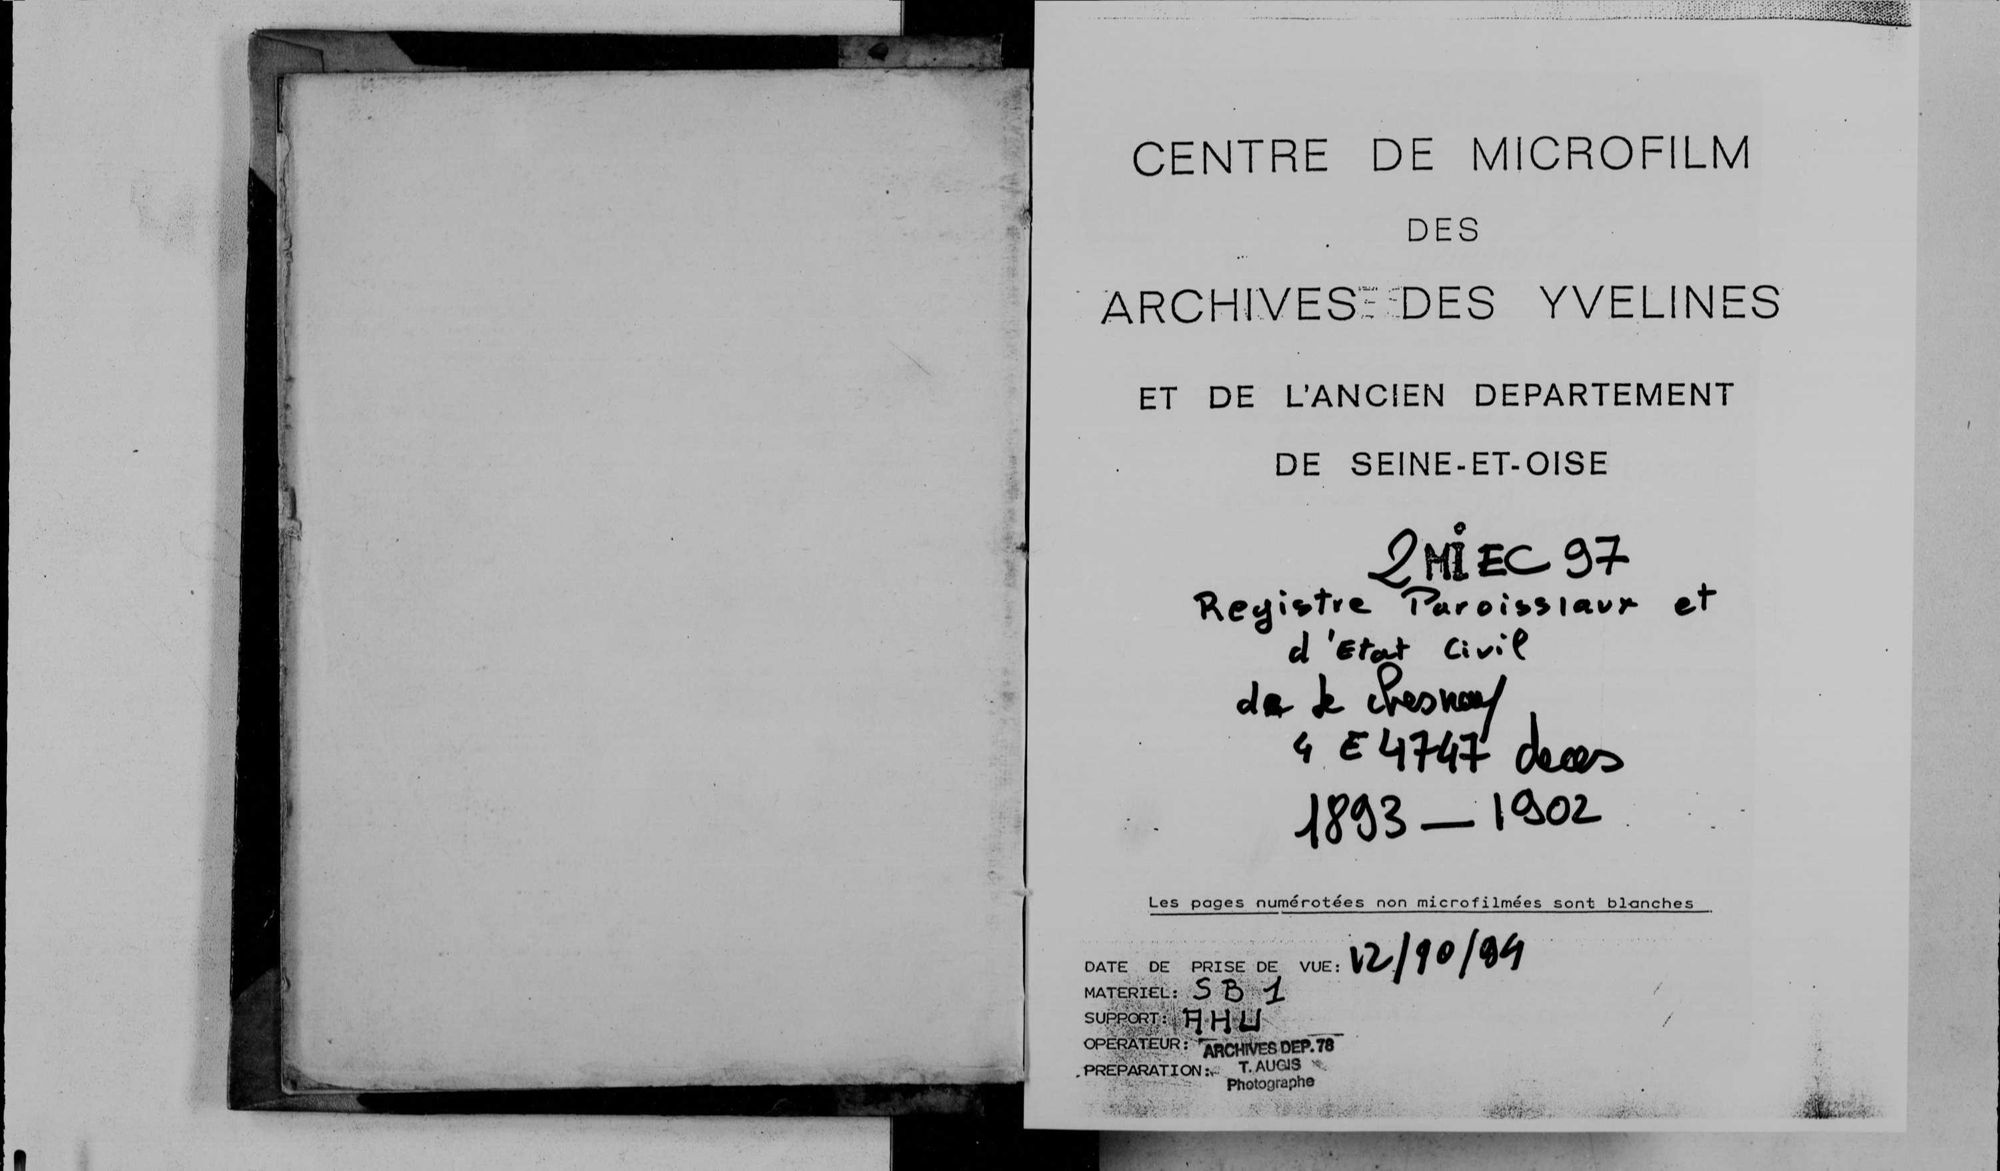 CENTRE DE MICROFILM
DES
ARCHIVES DES YVELINES
ET DE L'ANCIEN DEPARTEMENT
DE SEINE-ET-OISE
2 Mi EC 97
Registre Paroissiaux et
d'Etat Civil
de le chesnay
4 E 4747 deces
1893 — 1902
Les pages numérotées non microfilmées sont blanches
DATE DE PRISE DE VUE: 12/10/94
MATERIEL: SB 1
SUPPORT: AHU
OPERATEUR: ARCHIVES DEP. 78
PREPARATION: T. AUGIS
Photographe